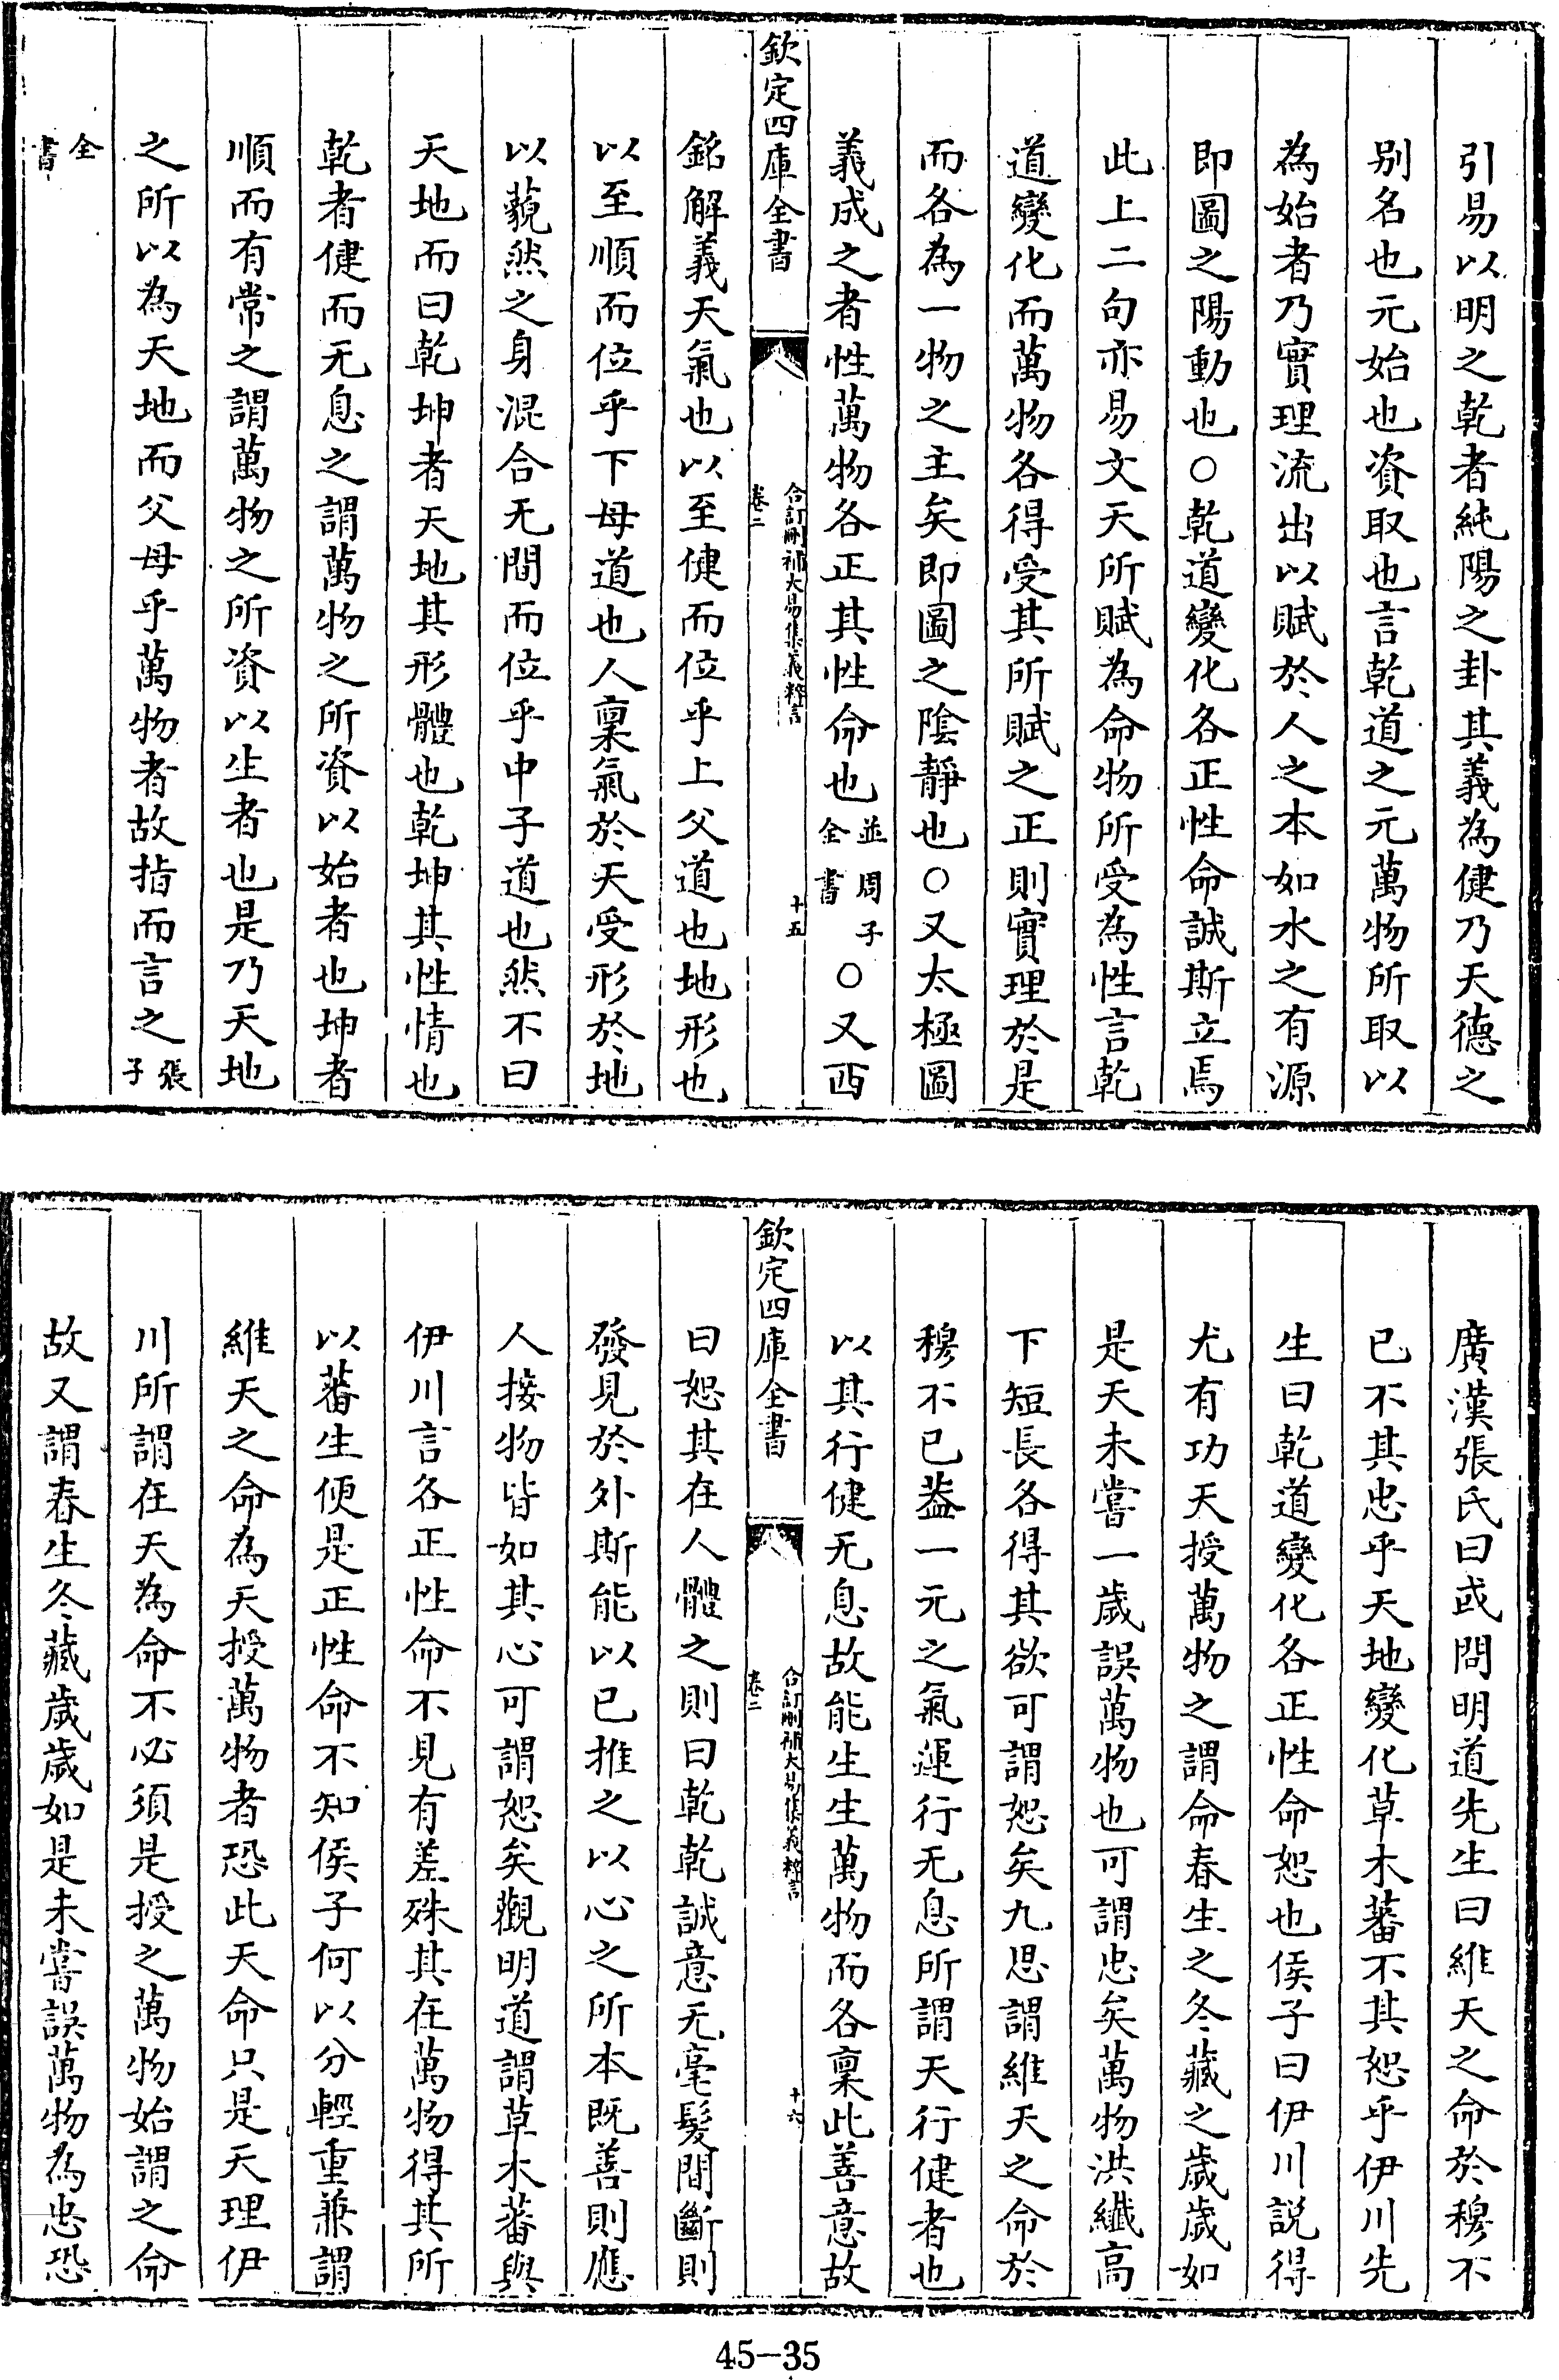 引易以明之乾者純陽之卦其義為健乃天德之
别名也元始也資取也言乾道之元萬物所取以
為始者乃實理流出以賦於人之本如水之有源
即圖之陽動也○乾道變化各正性命誠斯立焉
此上二句亦易文天所賦為命物所受為性言乾
道變化而萬物各得受其所賦之正則實理於是
而各為一物之主矣即圖之陰靜也○又太極圖
義成之者性萬物各正其性命也並周子全書○又西
欽定四庫全書
合訂刪補大易集義粹言
卷二
十五
銘解義天氣也以至健而位乎上父道也地形也
以至順而位乎下母道也人稟氣於天受形於地
以藐然之身混合无間而位乎中子道也然不曰
天地而曰乾坤者天地其形體也乾坤其性情也
乾者健而无息之謂萬物之所資以始者也坤者
順而有常之謂萬物之所資以生者也是乃天地
之所以為天地而父母乎萬物者故指而言之張子
全書
廣漢張氏曰或問明道先生曰維天之命於穆不
已不其忠乎天地變化草木蕃不其恕乎伊川先
生曰乾道變化各正性命恕也侯子曰伊川説得
尤有功天授萬物之謂命春生之冬藏之歲歲如
是天未嘗一歲誤萬物也可謂忠矣萬物洪纖高
下短長各得其欲可謂恕矣九思謂維天之命於
穆不已葢一元之氣運行无息所謂天行健者也
以其行健无息故能生生萬物而各稟此善意故
欽定四庫全書
合訂刪補大易集義粹言
卷二
十六
曰恕其在人體之則曰乾乾誠意无毫髮間斷則
發見於外斯能以已推之以心之所本既善則應
人接物皆如其心可謂恕矣觀明道謂草木蕃與
伊川言各正性命不見有差殊其在萬物得其所
以蕃生便是正性命不知侯子何以分輕重兼謂
維天之命為天授萬物者恐此天命只是天理伊
川所謂在天為命不必須是授之萬物始謂之命
故又謂春生冬藏歲歲如是未嘗誤萬物為忠恐
45-35